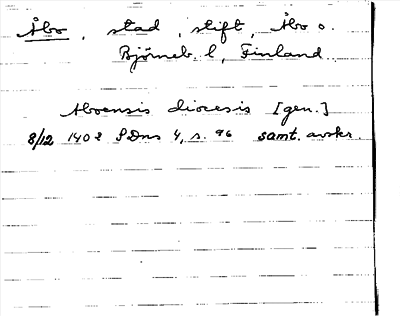 Åbo, stad, stift, Åbo o.
Björneb. l, Finland
Aboensis diocesis [gen.]
8/12 1408 SDns 4, s. 96 samt. avskr.